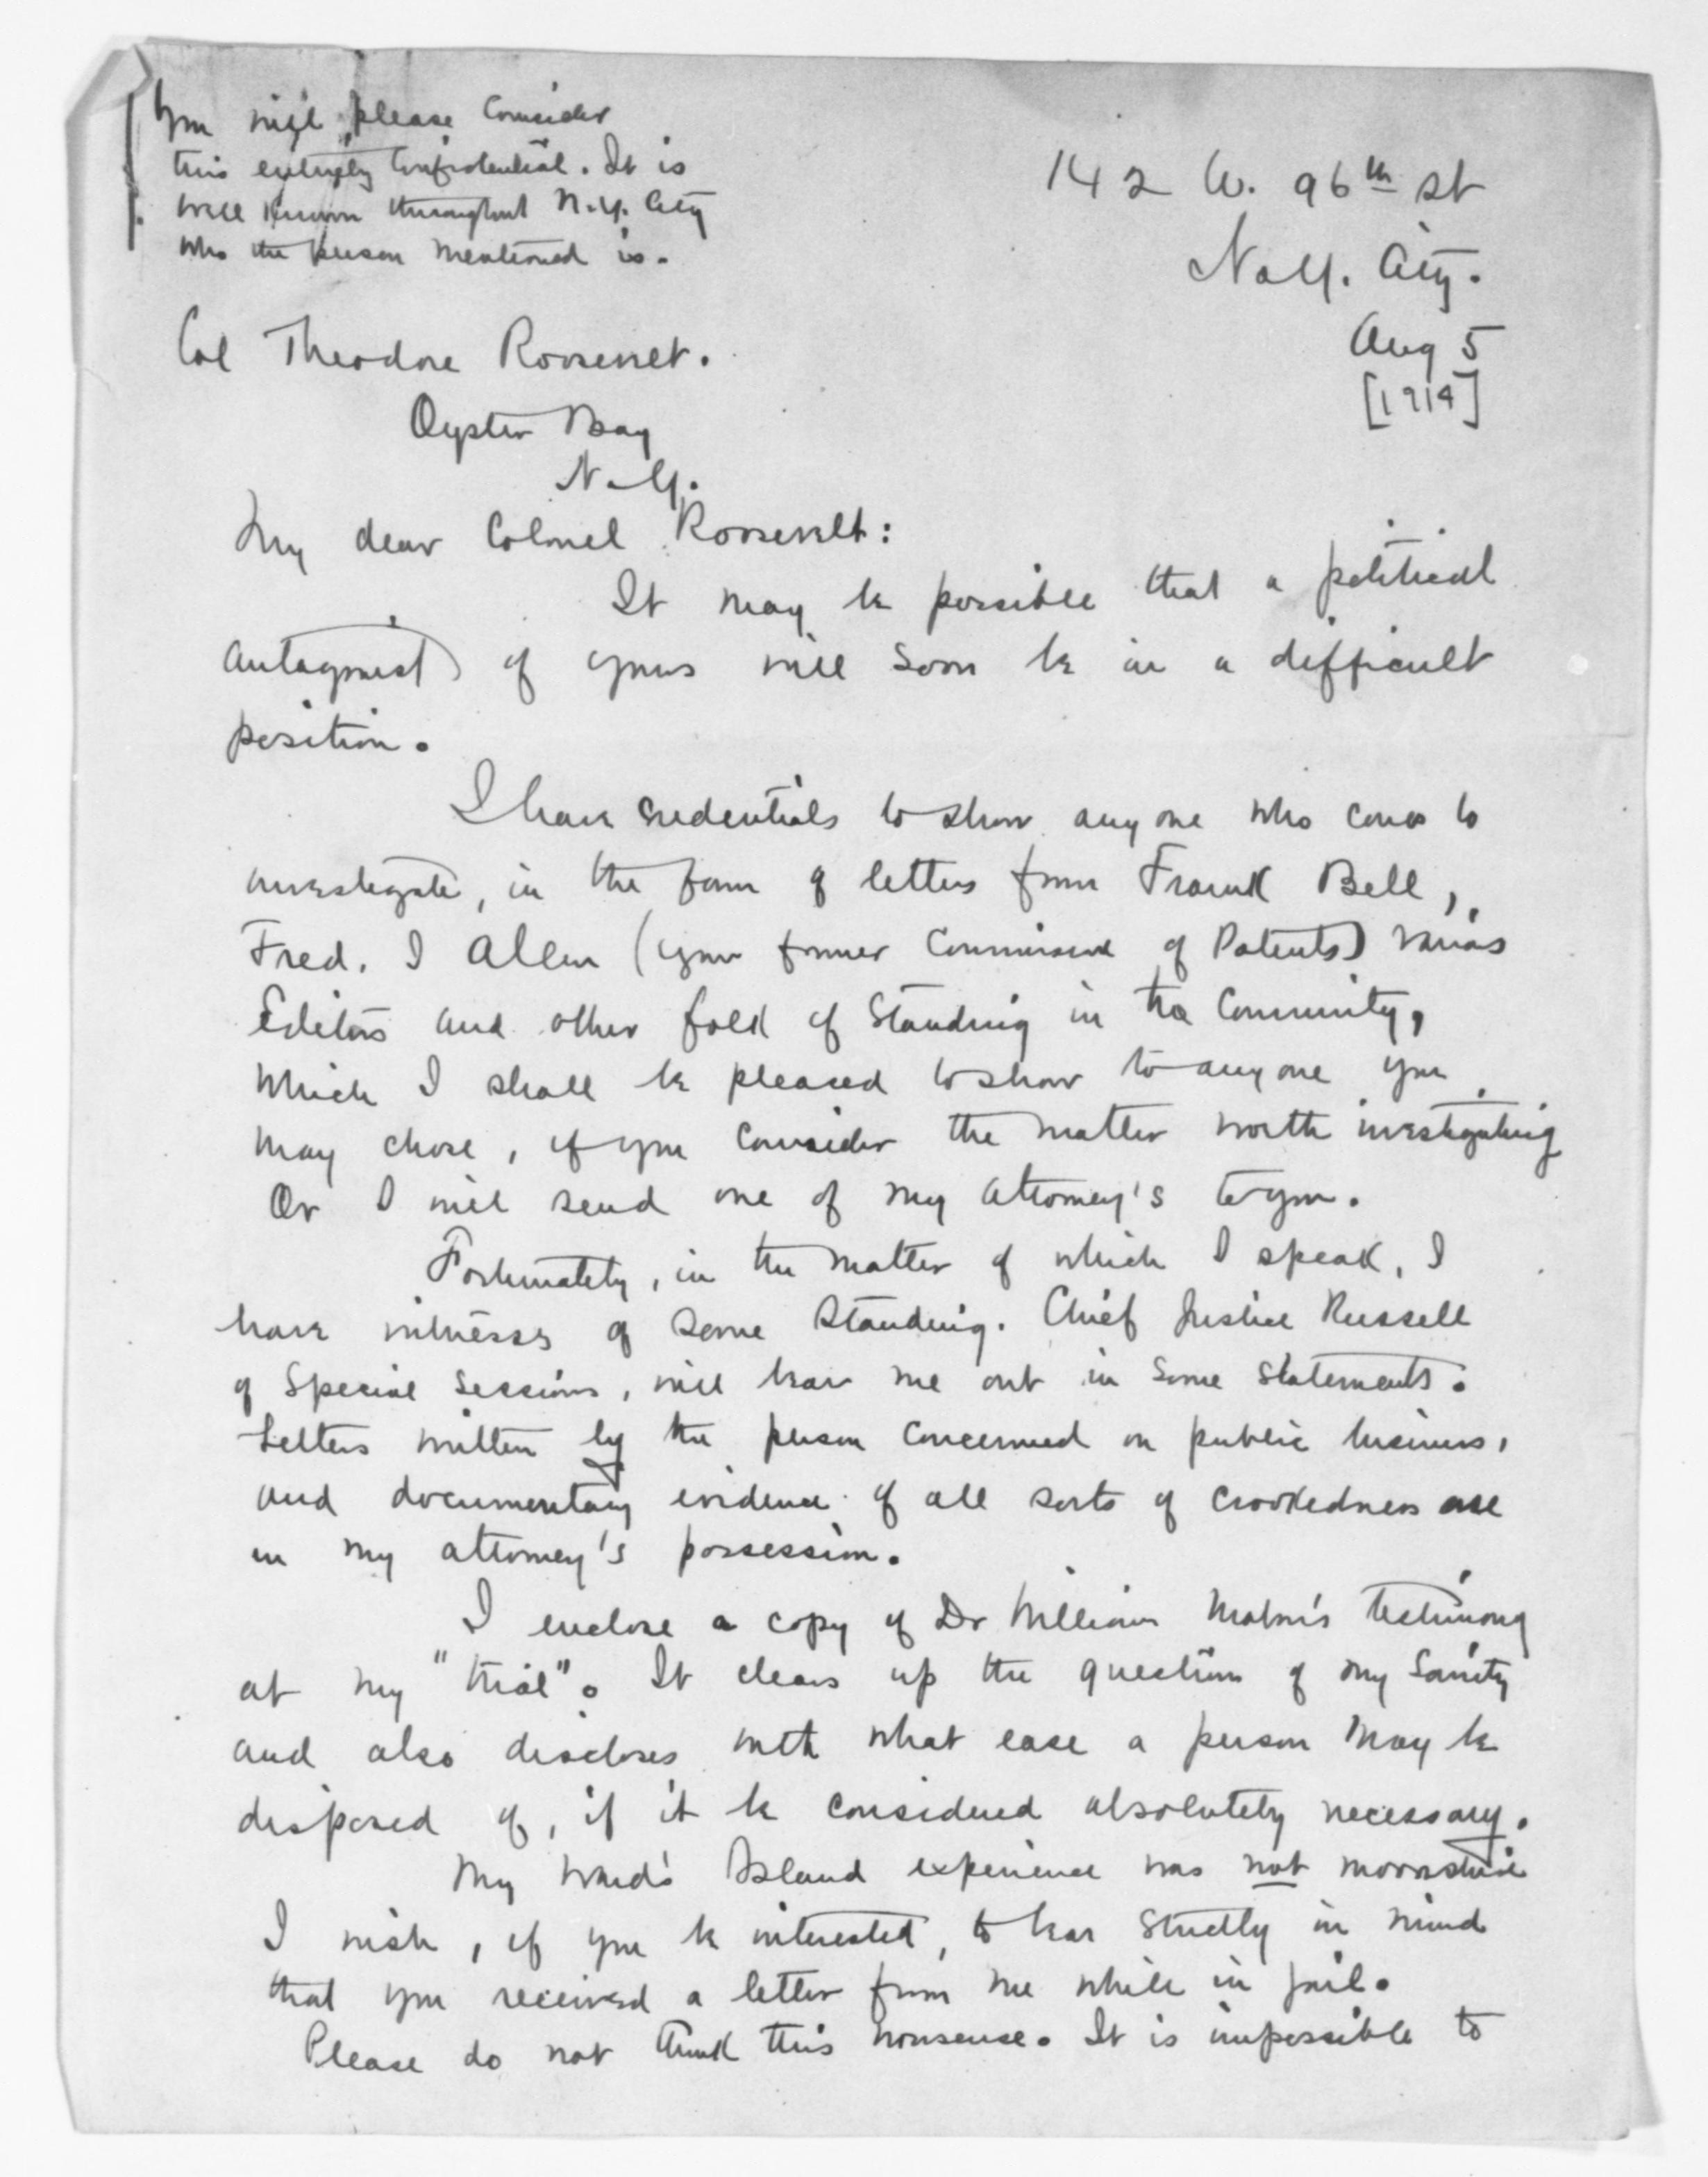 You will please consider
this entirely confidential. It is
well known throughout N.Y. City
who the person mentioned is.
142 W. 96th St
N.Y. City.
Aug 5
[1914]
Col Theodore Roosevelt.
Oyster Bay
N.Y.
My dear Colonel Roosevelt:
It may be possible that a political
antagonist of yours will soon be in a difficult
position.
I have credentials to show any one who comes to
investigate, in the form of letters from Frank Bell,
Fred. I Allen (your former Commissioner of Patents) various
Editors and other folk of standing in the community,
which I shall be pleased to show to any one you
may chose, if you consider the matter worth investigating
Or I will send one of my attorney's to you.
Fortunately, in the matter of which I speak, I
have witnesses of some standing. Chief Justice Russell
of Special Sessions, will bear me out in some statements.
Letters written by the person concerned on public business,
and documentary evidence of all sorts of crookedness are
in my attorney's possession.
I enclose a copy of Dr William Mabon's testimony
at my "trial". It clears up the question of my sanity
and also discloses with what ease a person may be
disposed of, if it be considered absolutely necessary.
My Ward's Island experience was not
I wish, if you be interested, to bear strictly in mind
that you received a letter from me while in jail.
Please do not think this nonsense. It is impossible to